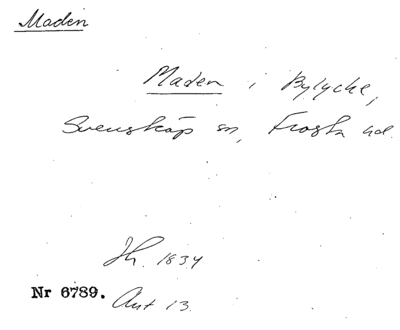 Maden
Maden i Bylycke,
Svensköp sn, Frosta hd.
Jb. 1834
Nr 6789. Akt 13.